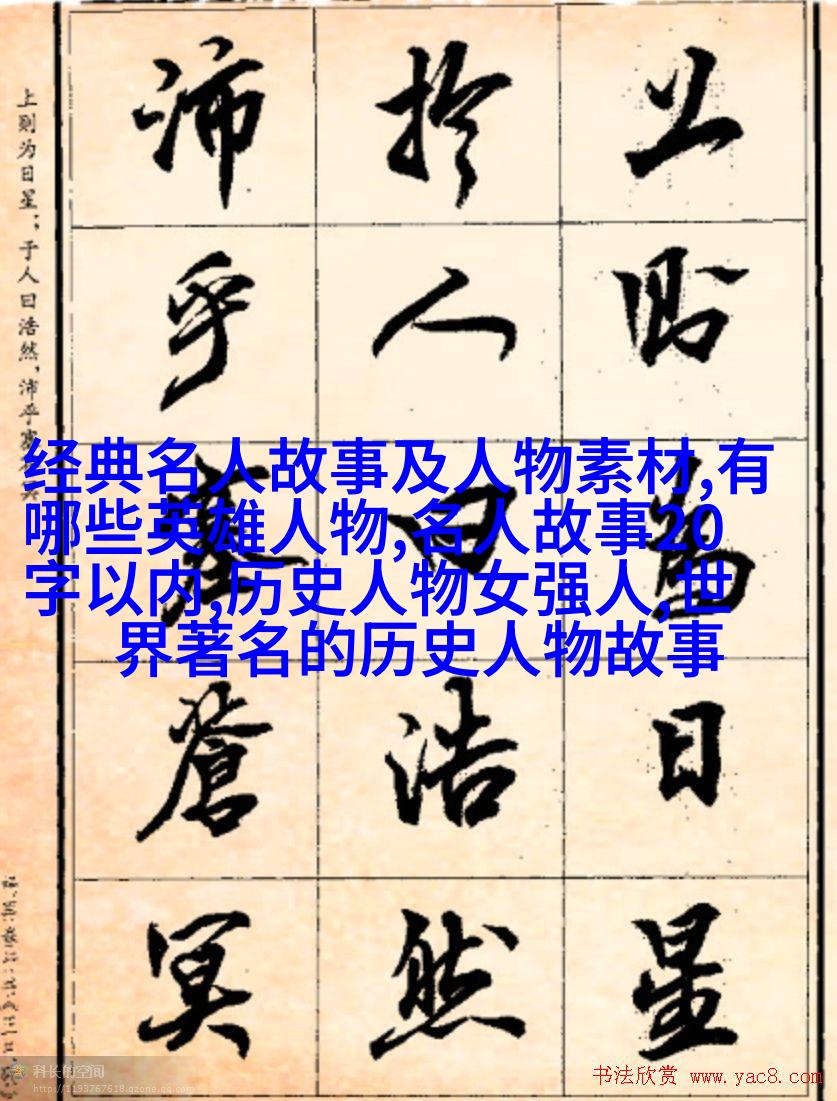 上則為日星
於人曰浩然
沛乎塞蒼冥
上则为日星；于人曰浩然，沛乎塞
经典名人故事及人物素材,有
哪些英雄人物,名人故事20
字以内,历史人物女强人,世
界著名的历史人物故事
科长的空间
http://1193767618.qzone.qq.com
书法欣赏 www.yac8.com